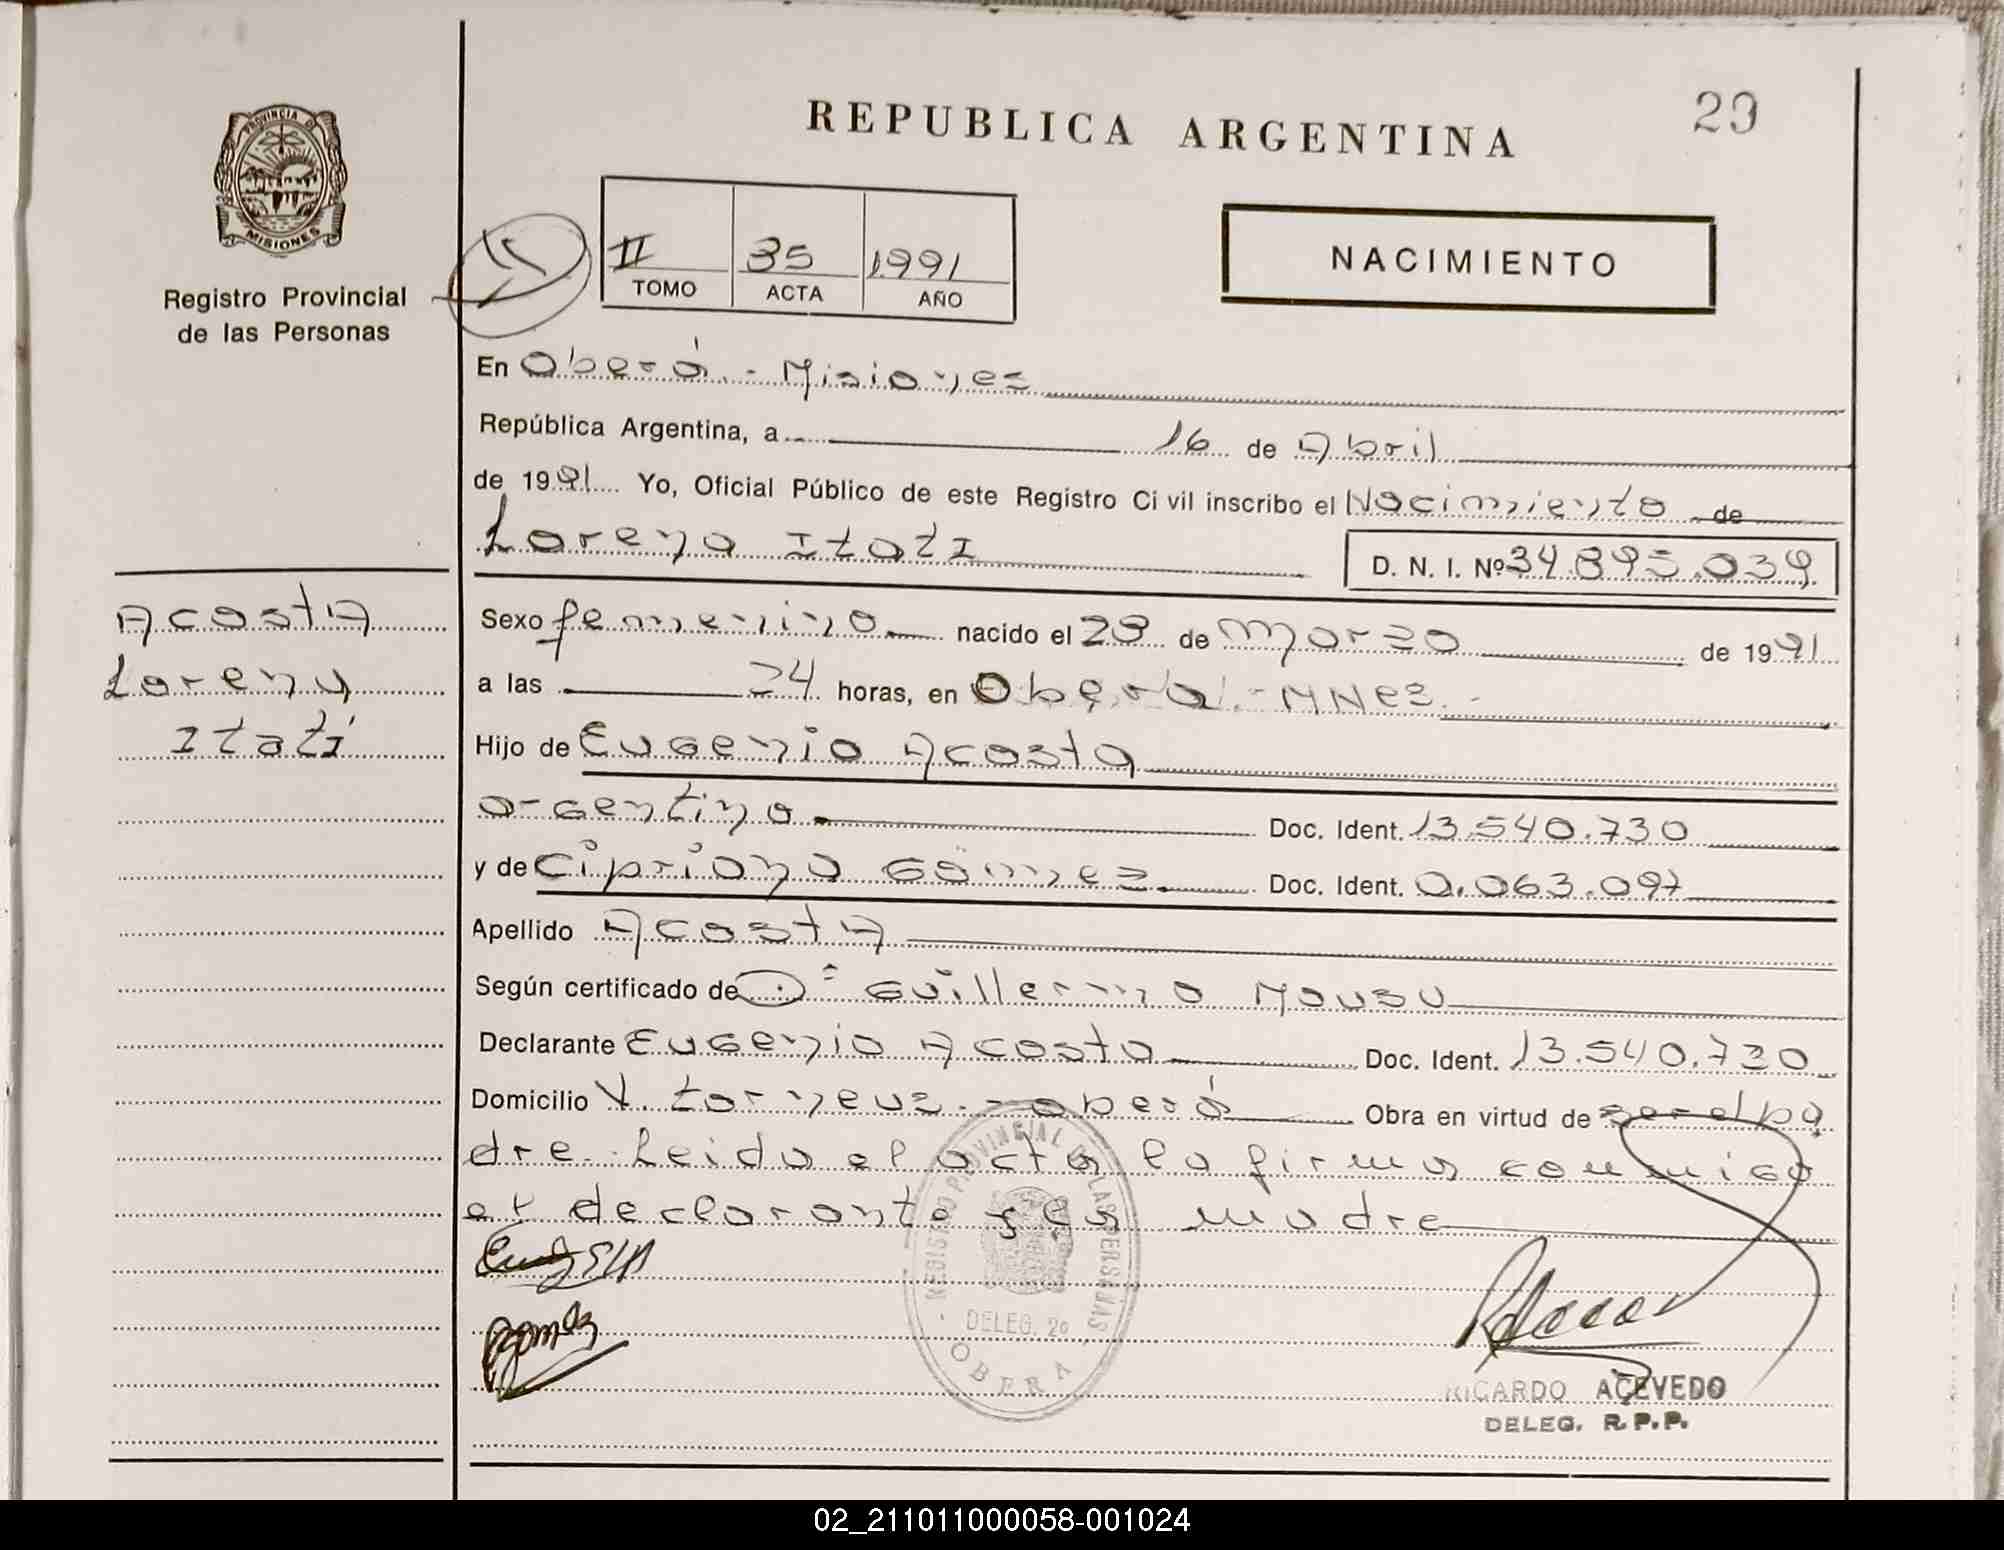 REPUBLICA ARGENTINA
29
PROVINCIA DE
MISIONES
Registro Provincial
de las Personas
II 35 1991
TOMO ACTA AÑO
NACIMIENTO
En Oberá - Misiones
República Argentina, a 16 de Abril
de 1991 Yo, Oficial Público de este Registro Civil inscribo el Nacimiento de
Lorena Itati
D. N. I. Nº 34.895.039
Acosta
Lorena
Itatí
Sexo femenino nacido el 29 de Marzo de 1991
a las 24 horas, en Oberá - MNes.-
Hijo de Eugenio Acosta
argentino Doc. Ident. 13.540.730
y de Cipriana Gómez Doc. Ident. 0.063.097
Apellido Acosta
Según certificado de Dº Guillermo
Declarante Eugenio Acosta Doc. Ident. 13.540.730
Domicilio V. torneus - oberá Obra en virtud de ser el pa
dre. Leida el acta la firma conmigo
el declarante y la madre
Gomez
REGISTRO PROVINCIAL DE LAS PERSONAS
DELEG. 2º
OBERA
RICARDO ACEVEDO
DELEG. R.P.P.
02_211011000058-001024